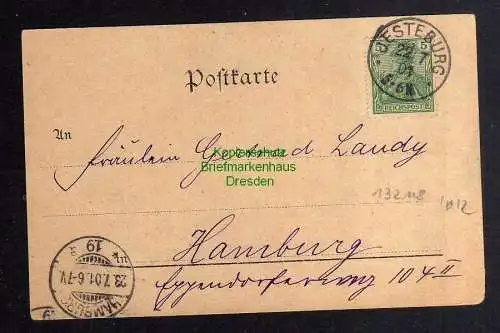 JESTEBURG
22 7
01
5-6N
REICHSPOST
Postkarte
An
Fräulein Gertrud Landy
Kopierschutz
Briefmarkenhaus
Dresden
132118
Hamburg
Eppendorferweg 104 II
19
23.7.01.6-7V.
HAMBURG